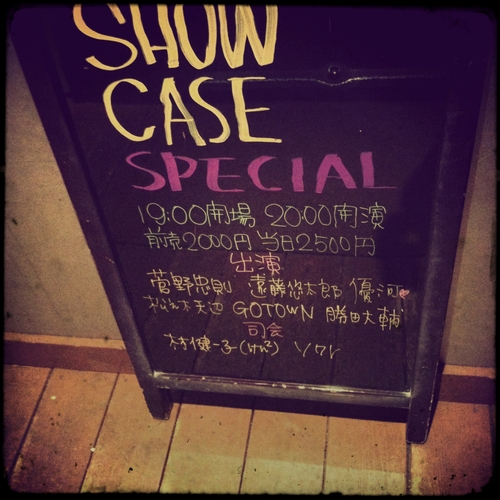 SHOW
CASE
SPECIAL
19:00開場 20:00開演
前売2000円 当日2500円
出演
菅野忠則 遠藤悠太郎 優河
GOTOWN 勝田大輔
司会